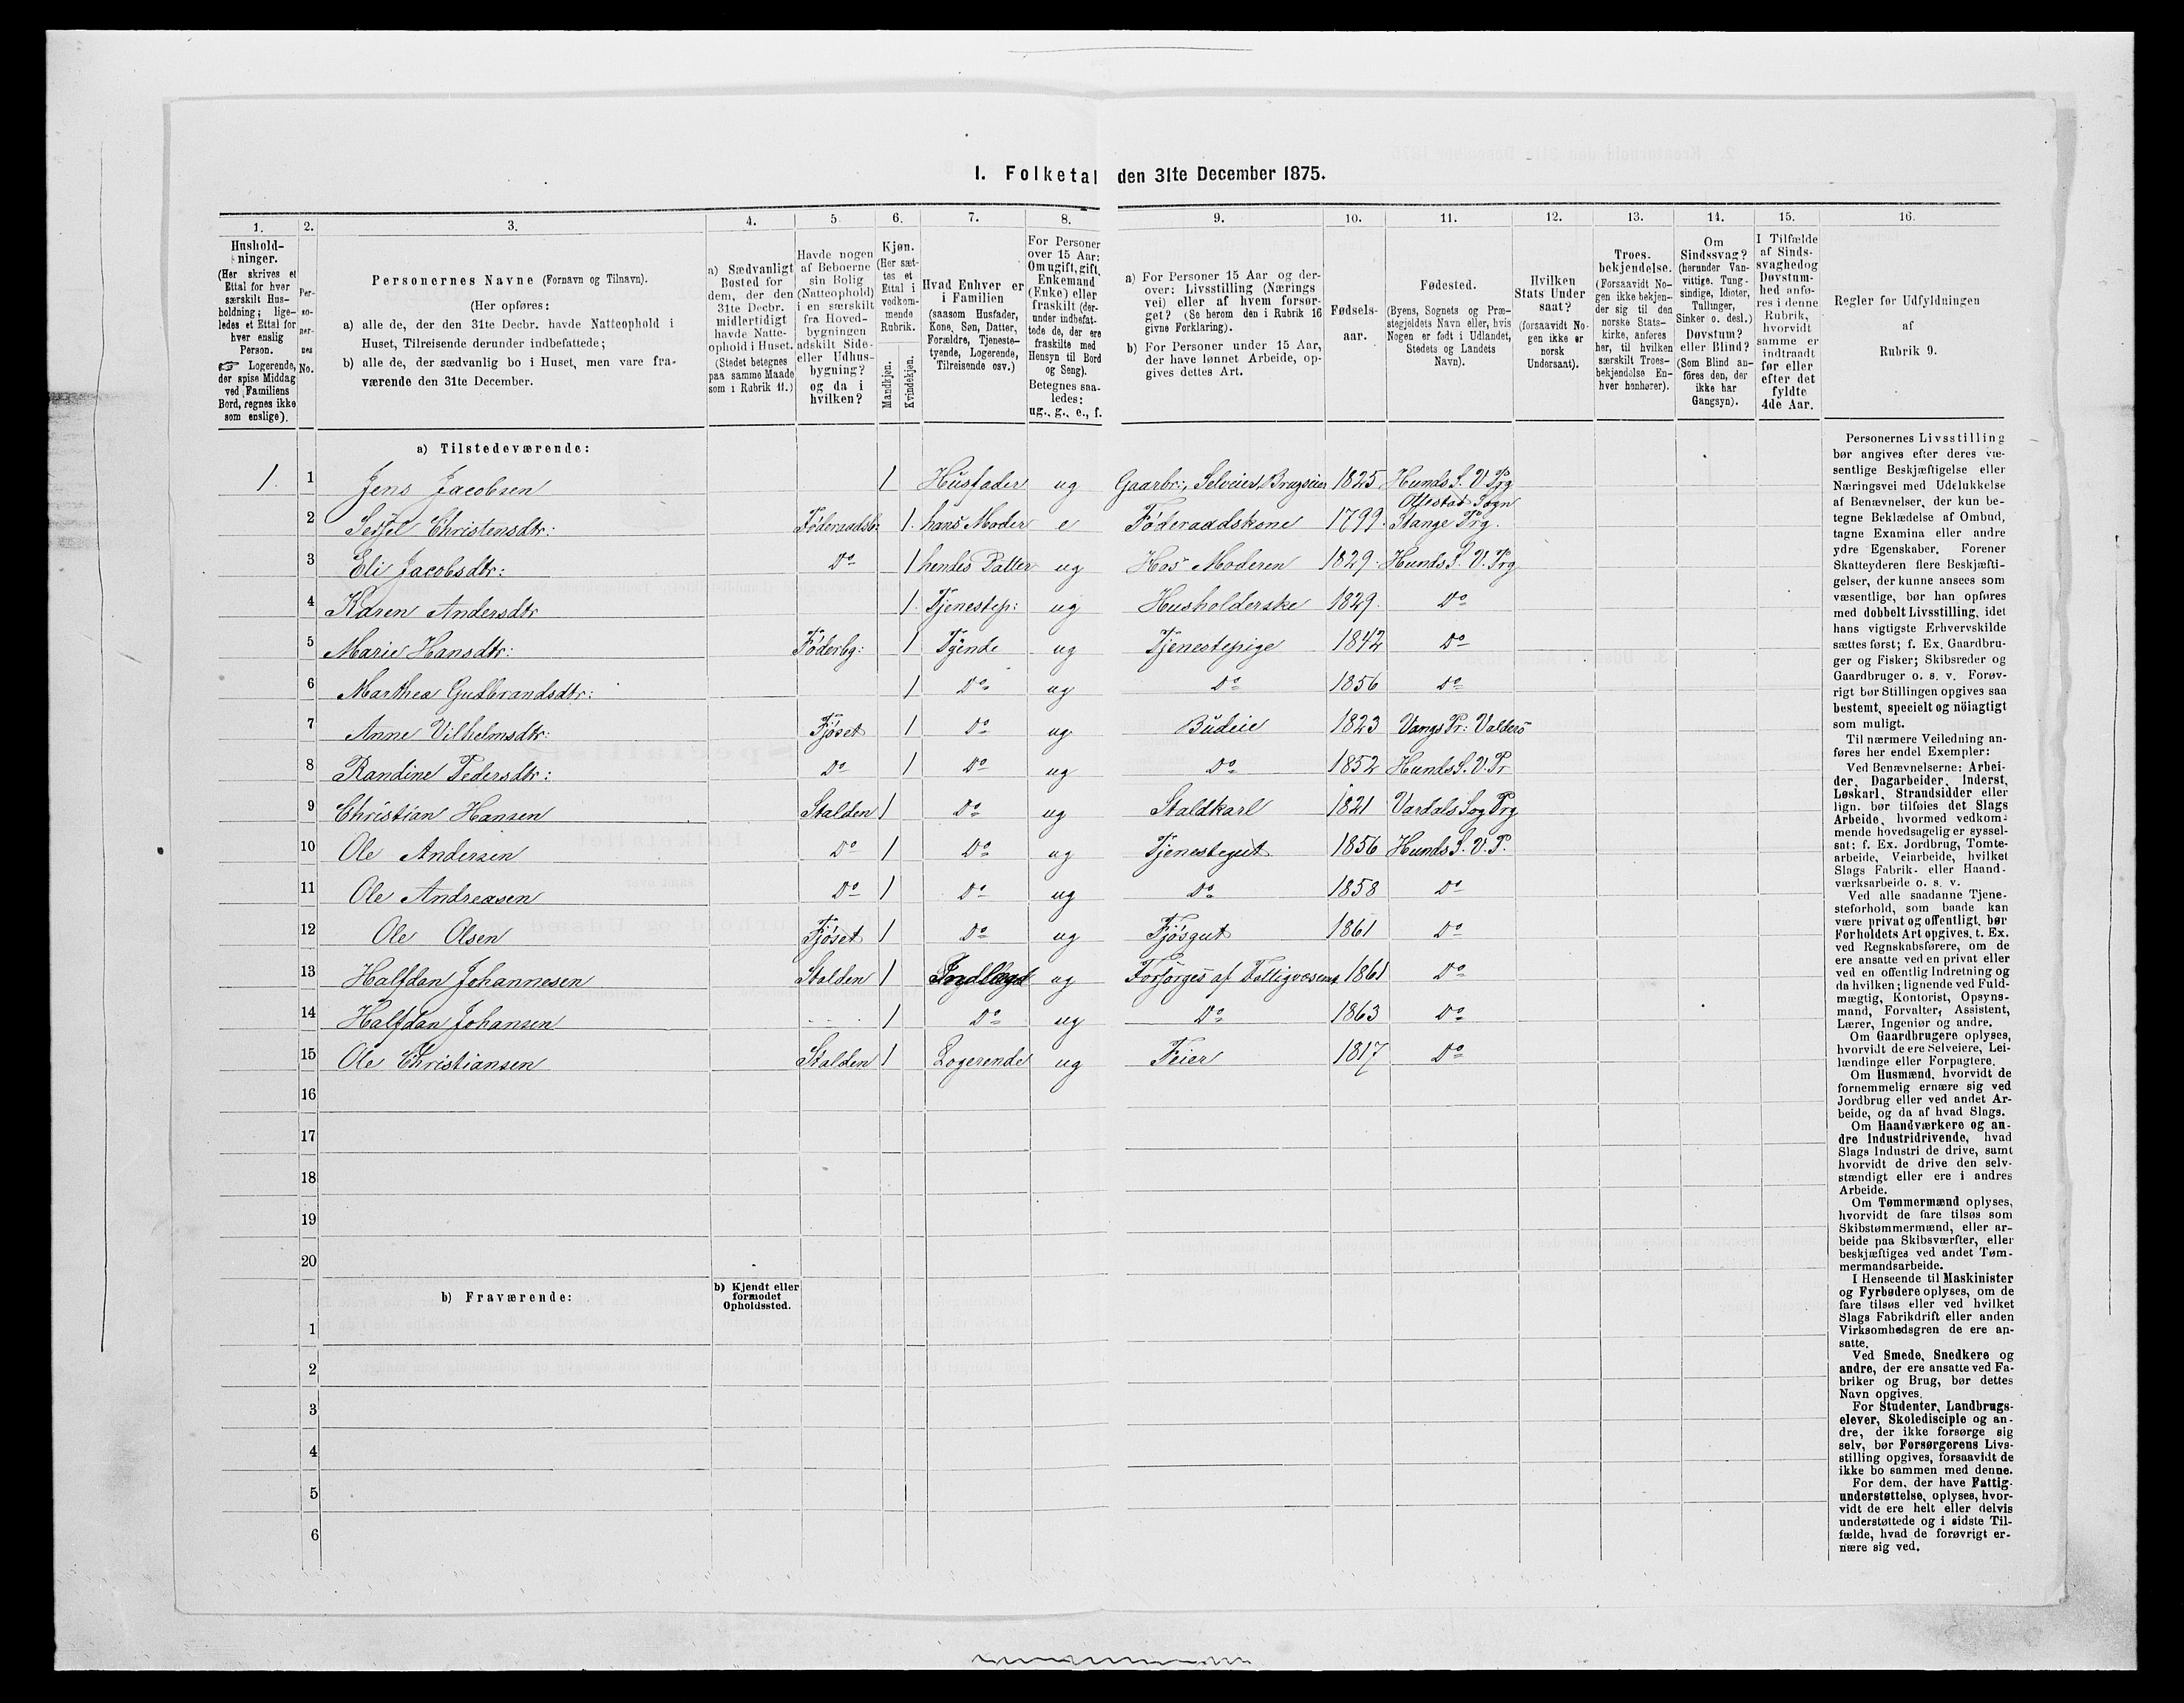 I. Folketal den 31te December 1875.
1. 2. 3. 4. 5. 6. 7. 8. 9. 10. 11. 12. 13. 14. 15. 16.
Hushold-
ninger.
(Her skrives et
Ettal for hver
særskilt Hus-
holdning; lige-
ledes et Ettal for
hver enslig
Person.
☞ Logerende,
der spise Middag
ved Familiens
Bord, regnes ikke
som enslige).
Per-
so-
ner-
nes
No.
Personernes Navne (Fornavn og Tilnavn).
(Her opføres:
a) alle de, der den 31te Decbr. havde Natteophold i
Huset, Tilreisende derunder indbefattede;
b) alle de, der sædvanlig bo i Huset, men vare fra-
værende den 31te December.
a) Sædvanligt
Bosted for
dem, der den
31te Decbr.
midlertidigt
havde Natte-
ophold i Huset.
(Stedet betegnes
paa samme Maade
som i Rubrik 11.)
Havde nogen
af Beboerne
sin Bolig
(Natteophold)
i en særskilt
fra Hoved-
bygningen
adskilt Side-
eller Udhus-
bygning?
og da i
hvilken?
Kjøn.
(Her sæt-
tes et
Ettal i
vedkom-
mende
Rubrik.
Mandkjøn.
Kvindekjøn.
Hvad Enhver er
i Familien
(saasom Husfader,
Kone, Søn, Datter,
Forældre, Tjeneste-
tyende, Logerende,
Tilreisende osv.)
For Personer
over 15 Aar:
Om ugift, gift,
Enkemand
(Enke) eller
fraskilt (der-
under indbefat-
tede de, der ere
fraskilte med
Hensyn til Bord
og Seng).
Betegnes saa-
ledes:
ug., g., e., f.
a) For Personer 15 Aar og der-
over: Livsstilling (Nærings
vei) eller af hvem forsør-
get? (Se herom den i Rubrik 16
givne Forklaring).
b) For Personer under 15 Aar,
der have lønnet Arbeide, op-
gives dettes Art.
Fødsels-
aar.
Fødested.
(Byens, Sognets og Præ-
stegjeldets Navn eller, hvis
Nogen er født i Udlandet,
Stedets og Landets
Navn).
Hvilken
Stats Under
saat?
(forsaavidt No-
gen ikke er
norsk
Undersaat).
Troes-
bekjendelse.
(Forsaavidt No-
gen ikke bekjen-
der sig til den
norske Stats-
kirke, anføres
her, til hvilken
særskilt Troes-
bekjendelse En-
hver henhører).
Om
Sindssvag?
(herunder Van-
vittige, Tung-
sindige, Idioter,
Tullinger,
Sinker o. desl.)
Døvstum?
eller Blind?
(Som Blind an-
föres den, der
ikke har
Gangsyn).
I Tilfælde
af Sinds-
svaghed og
Døvstum-
hed anfø-
res i denne
Rubrik,
hvorvidt
samme er
indtraadt
før eller
efter det
fyldte
4de Aar.
Regler før Udfyldningen
af
Rubrik 9.
a) Tilstedeværende:
1. 1 Jens Jacobsen 1 Husfader ug Gaarbr:, Selveier, Brugseier 1825 Hunds S. V. Prg
2 Christensdtr: Føderaadsb: 1. hans Moder e Føderaadskone 1799. Ottestad Sogn Stange Prg.
3 Eli Jacobsdtr: Do 1 hendes Datter ug Hos Moderen 1829. Hunds S. V. Prg
4 Karen Andersdtr 1. Tjenestep: ug Husholderske 1829. Do
5 Marie Hansdtr: Føderbg: 1 Tyende ug Tjenestepige 1842 Do
6 Marthea Gudbrandsdtr: 1 Do ug Do 1856 Do
7 Anne Vilhelmsdtr: Fjøset 1 Do ug Budeie 1823 Vangs Pr: Valders
8 Randine Pedersdtr: Do 1 Do ug Do 1852 Hunds S. V. Pr
9 Christian Hansen Stalden 1 Do ug Staldkarl 1821 Vardals Sog Prg
10 Ole Andersen Do 1 Do ug Tjenestegut 1856 Hunds S. V. P.
11 Ole Andreasen Do 1 Do ug Do 1858 Do
12 Ole Olsen Fjøset 1 Do ug Fjøsgut 1861 Do
13 Halfdan Johannesen Stalden 1 Indlagd ug Forsørges af Fattigvæsenet 1861 Do
14 Halfdan Johansen 1 Do ug Do 1863 Do
15 Ole Christiansen Stalden 1 Logerende ug Feier 1817 Do
16
17
18
19
20
b) Fraværende:
b) Kjendt eller
formodet
Opholdssted.
1
2
3
4
5
6
Personernes Livsstilling
bør angives efter deres væ-
sentlige Beskjæftigelse eller
Næringsvei med Udelukkelse
af Benævnelser, der kun be-
tegne Beklædelse af Ombud,
tagne Examina eller andre
ydre Egenskaber. Forener
Skatteyderen flere Beskjæfti-
gelser, der kunne ansees som
væsentlige, bør han opføres
med dobbelt Livsstilling, idet
hans vigtigste Erhvervskilde
sættes først; f. Ex. Gaardbru-
ger og Fisker; Skibsreder og
Gaardbruger o. s. v. Forøv-
rigt bør Stillingen opgives saa
bestemt, specielt og nöiagtigt
som muligt.
Til nærmere Veiledning an-
føres her endel Exempler:
Ved Benævnelserne: Arbei-
der, Dagarbeider, Inderst,
Løskarl, Strandsidder eller
lign. bør tilføies det Slags
Arbeide, hvormed vedkom-
mende hovedsagelig er syssel-
sat: f. Ex. Jordbrug, Tomte-
arbeide, Veiarbeide, hvilket
Slags Fabrik- eller Haand-
værksarbeide o. s. v.
Ved alle saadanne Tjene-
steforhold, som baade kan
være privat og offentligt, bør
Forholdets Art opgives, t. Ex.
ved Regnskabsførere, om de
ere ansatte ved en privat eller
ved en offentlig Indretning og
da hvilken; lignende ved Fuld-
mægtig, Kontorist, Opsyns-
mand, Forvalter, Assistent,
Lærer, Ingeniør og andre.
Om Gaardbrugere oplyses,
hvorvidt de ere Selveiere, Lei-
lændinge eller Forpagtere.
Om Husmænd, hvorvidt de
fornemmelig ernære sig ved
Jordbrug eller ved andet Ar-
beide, og da af hvad Slags.
Om Haandværkere og an-
dre Industridrivende, hvad
Slags Industri de drive, samt
hvorvidt de drive den selv-
stændigt eller ere i andres
Arbeide.
Om Tømmermænd oplyses,
hvorvidt de fare tilsøs som
Skibstømmermænd, eller ar-
beide paa Skibsværfter, eller
beskjæftiges ved andet Tøm-
mermandsarbeide.
I Henseende til Maskinister
og Fyrbødere oplyses, om de
fare tilsøs eller ved hvilket
Slags Fabrikdrift eller anden
Virksomhedsgren de ere an-
satte.
Ved Smede, Snedkere og
andre, der ere ansatte ved Fa-
briker og Brug, bør dettes
Navn opgives.
For Studenter, Landbrugs-
elever, Skoledisciple og an-
dre, der ikke forsørge sig
selv, bør Forsørgerens Livs-
stilling opgives, forsaavidt de
ikke bo sammen med denne.
For dem, der have Fattig-
understøttelse, oplyses, hvor-
vidt de ere helt eller delvis
understøttede og i sidste Til-
fælde, hvad de forøvrigt er-
nære sig ved.